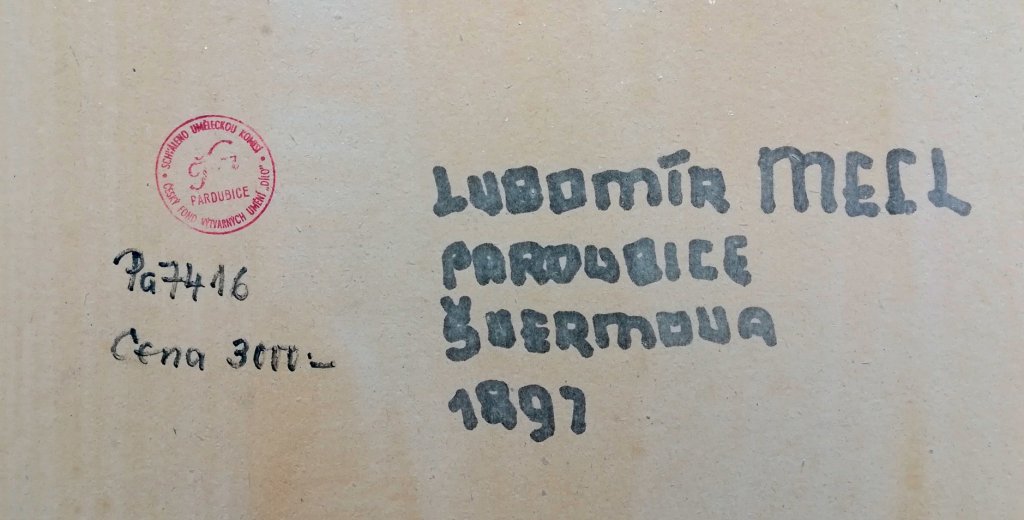 SCHVÁLENO UMĚLECKOU KOMISÍ
PARDUBICE
ČESKÝ FOND VÝTVARNÝCH UMĚNÍ „DÍLO“
Pa7416
Cena 3000.-
LUBOMÍR MECL
PARDUBICE
ŠVERMOVA
1897